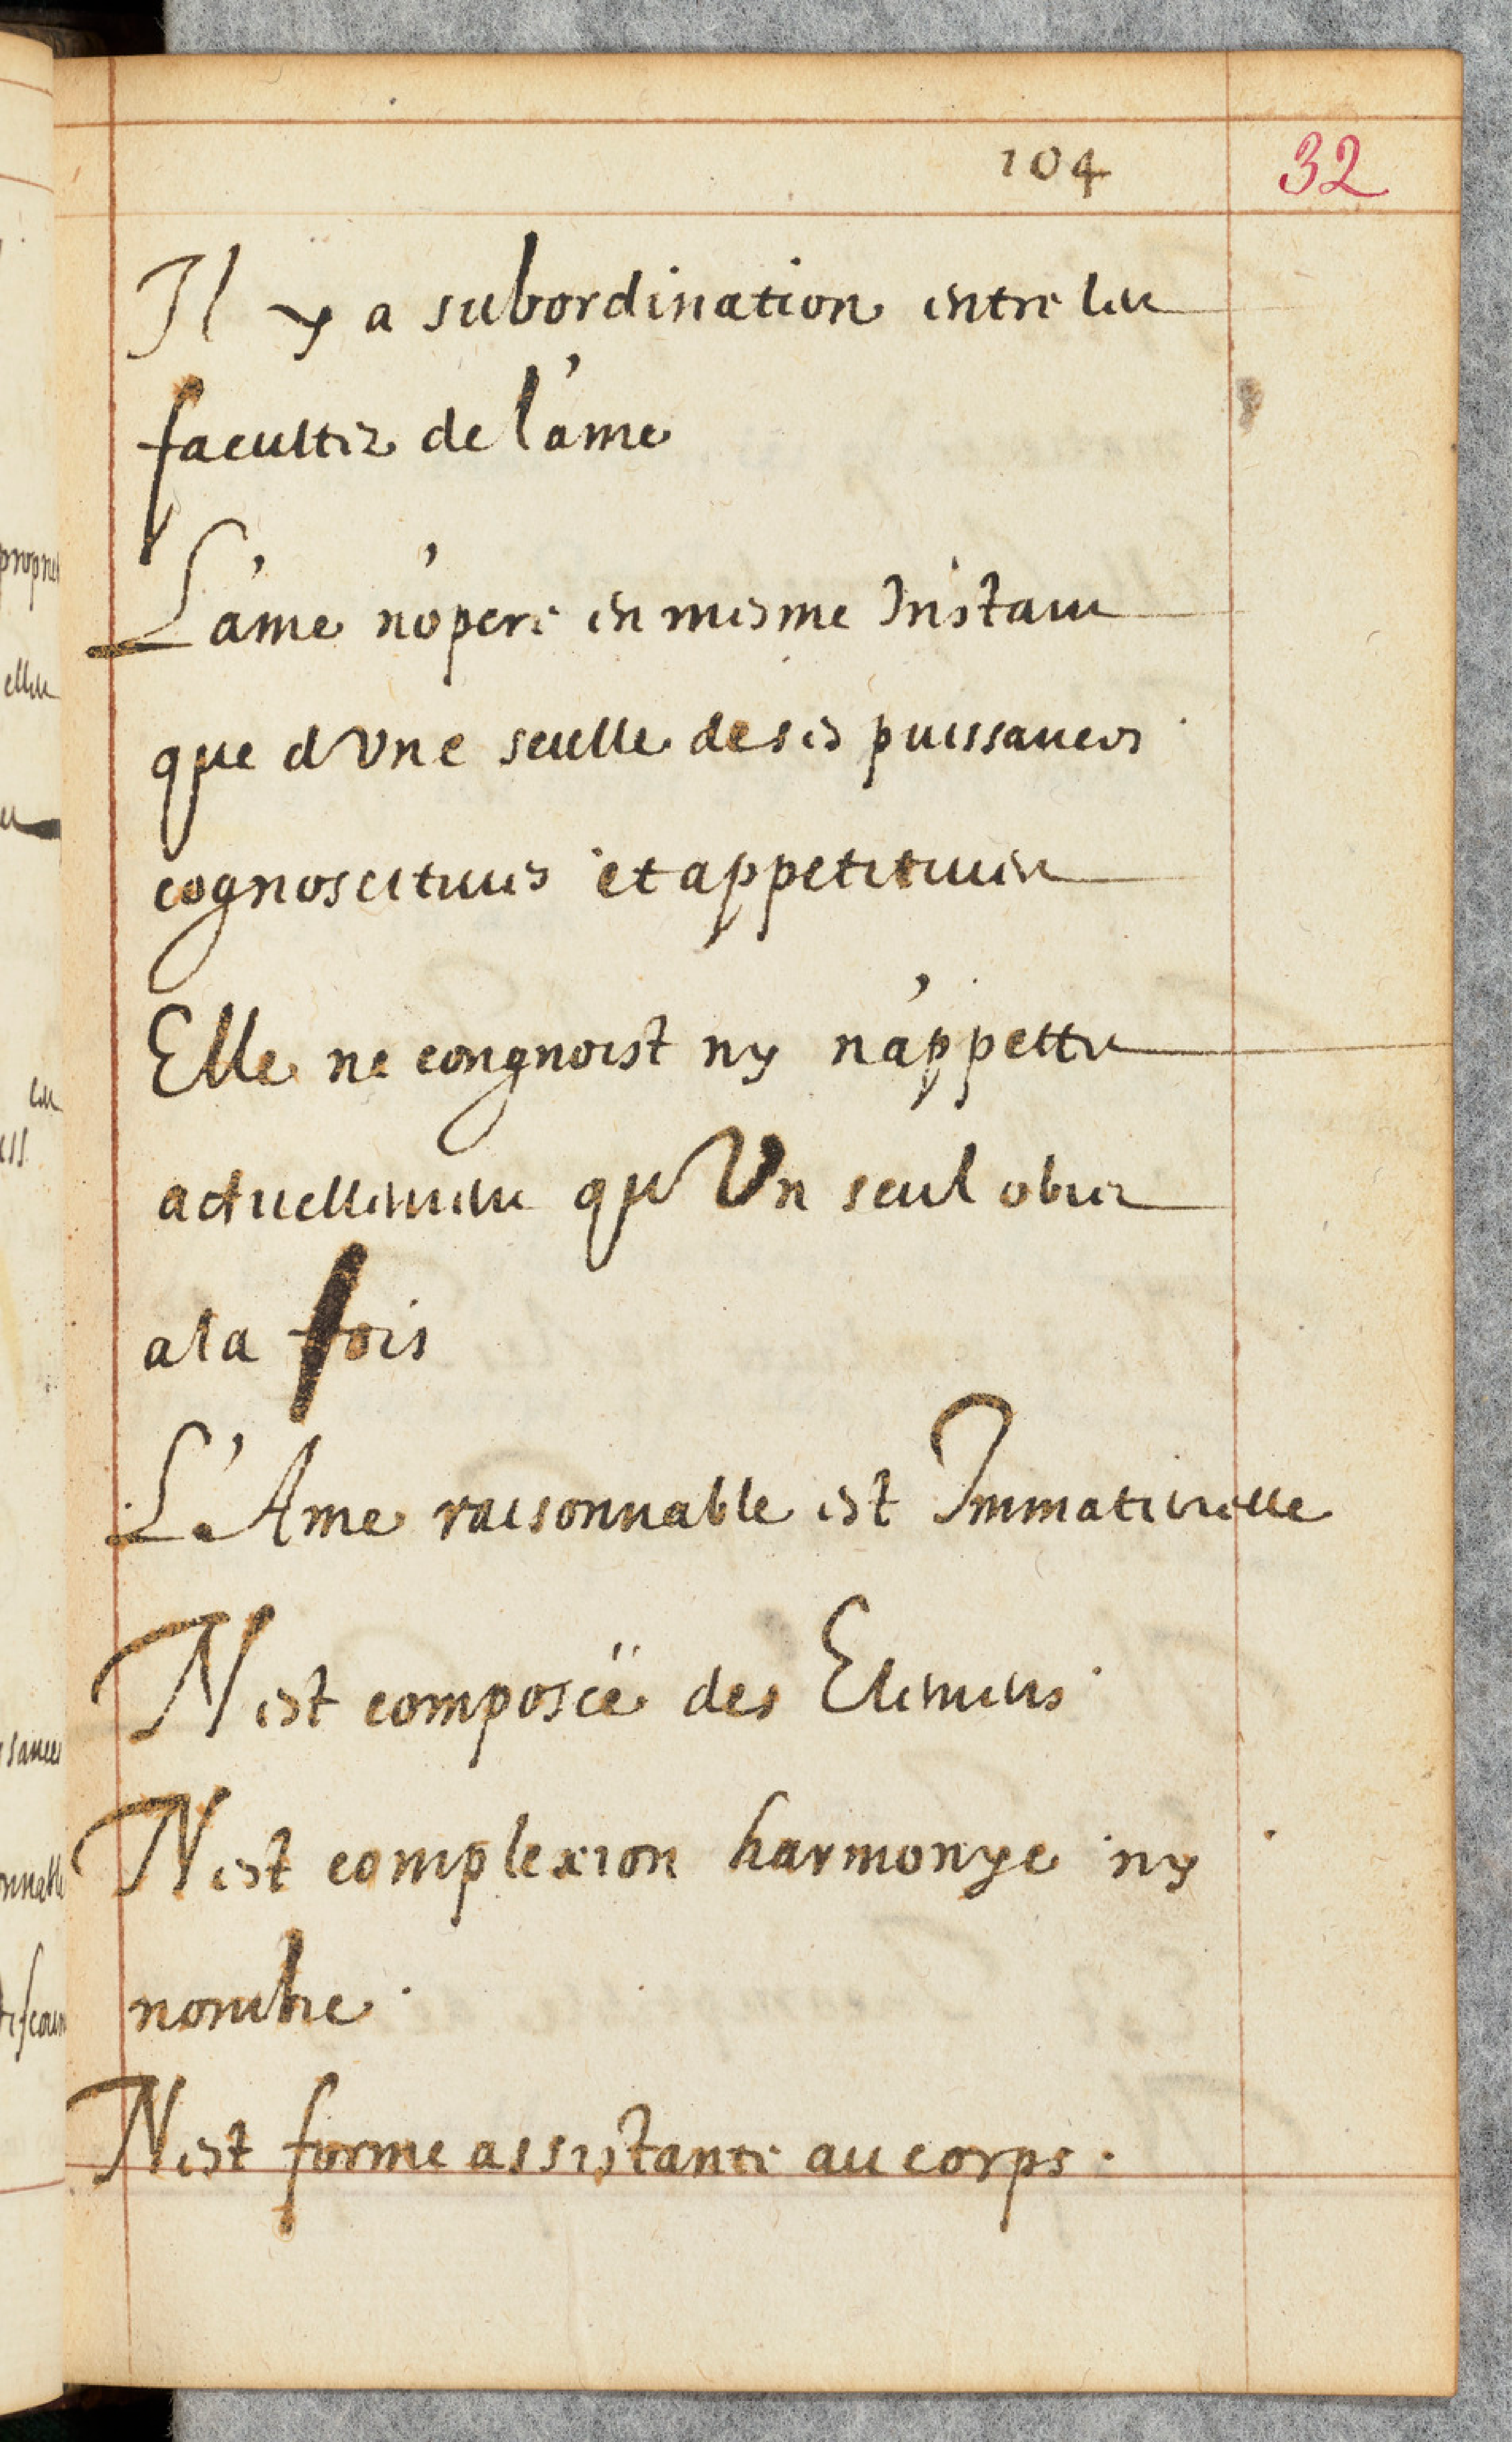 104 32
Il y a subordination entre les
facultez de l'ame
L'ame n'opere en mesme Instant
que d'Vne seulle de ses puissances
cognoscitiues et appetitiues
Elle ne congnoist ny n'appette
actuellement qu'Vn seul obiet
a la fois
L'Ame raisonnable est Immaterielle
N'est composeë des Elemens
N'est complexion harmonye ny
nombre
N'est forme assistante au corps.